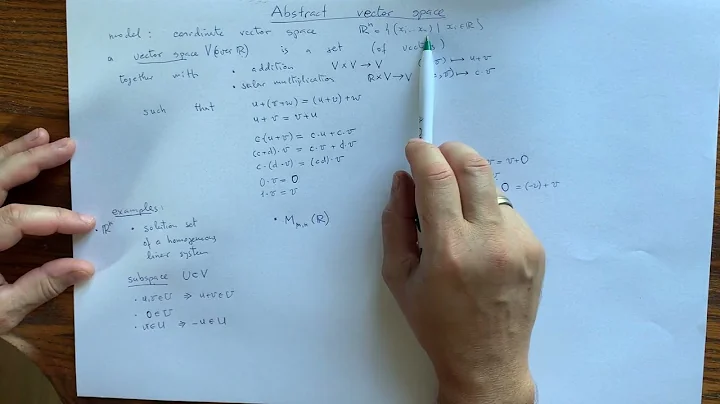 Abstract vector space
model: coordinate vector space ℝⁿ = { (x₁...xₙ) | xᵢ∈ℝ }
a vector space V (over ℝ) is a set (of vectors)
together with • addition V×V → V v) ⟼ u+v
• scalar multiplication ℝ×V → V , v) ⟼ c·v
such that u+(v+w) = (u+v)+w
u+v = v+u
c·(u+v) = c·u + c·v = v+0
(c+d)·v = c·v + d·v
c·(d·v) = (cd)·v 0 = (-v)+v
0·v = 0
1·v = v
examples:
• ℝⁿ • solution set of a homogeneous linear system • Mₘ,ₙ(ℝ)
subspace U⊂V
• u,v∈U ⇒ u+v∈U
• 0∈U
• u∈U ⇒ -u∈U